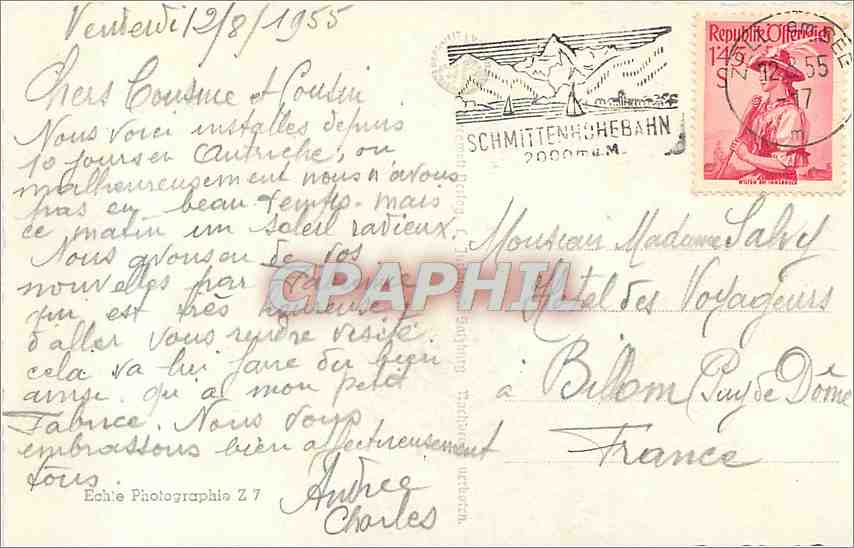 Vendredi 12/8/1955
Chers Cousine et Cousin
Nous voici installés depuis
10 jours en Autriche, ou
malheureusement nous n'avons
pas eu beau temps. mais
ce matin un soleil radieux.
Nous avons eu de vos
nouvelles par
qui est très heureuse
d'aller vous rendre visite.
cela va lui faire du bien
ainsi qu'à mon petit
Fabrice. Nous vous
embrassons bien affectueusement
tous.
Andrée
Charles
Echte Photographie Z 7
SCHMITTENHÖHEBAHN
2000 m ü.M.
Republik Österreich
1'45
S
WILTEN BEI INNSBRUCK
ZELL AM SEE
12.8.55
17
Monsieur Madame Salvy
Hotel des Voyageurs
à Billom (Puy de Dôme
France
CPAPHIL